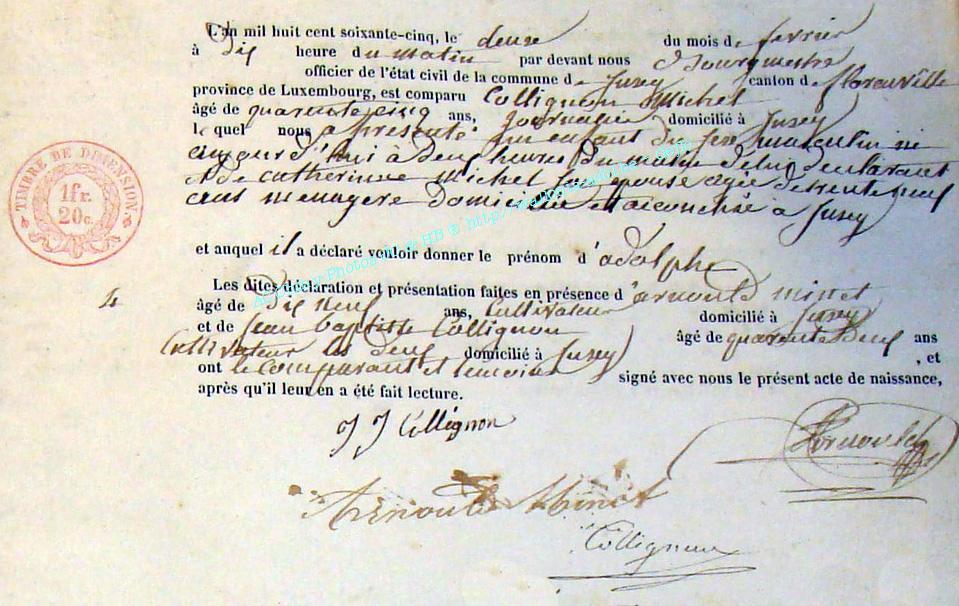 L'an mil huit cent soixante-cinq, le deuse du mois de fevrier
à Dix heure du matin par devant nous Bourgmestre
officier de l'état civil de la commune de Jusey canton de florenville
province de Luxembourg, est comparu Collignon Michel
âgé de quarente cinq ans, Journalier domicilié à Jusey
lequel nous a presenté un enfant du sexe masculin né
aujourd'hui à deux heures du matin de lui declarant
et de catherinne michel son epouse agée de trente neuf
ans menagere domiciliée et accouchée à Jusey
et auquel il a déclaré vouloir donner le prénom d'adolphe
Les dites déclaration et présentation faites en présence d'arnould minet
âgé de Dix neuf ans, Cultivateur domicilié à Jusey
et de Jean baptiste Collignon âgé de quarente Deux ans
Cultivateur les deux domicilié à Jusey , et
ont le comparant et temoins signé avec nous le présent acte de naissance,
après qu'il leur en a été fait lecture.
J J Collignon
Arnould Minet
Collignon
TIMBRE DE DIMENSION
1fr.
20c.
4